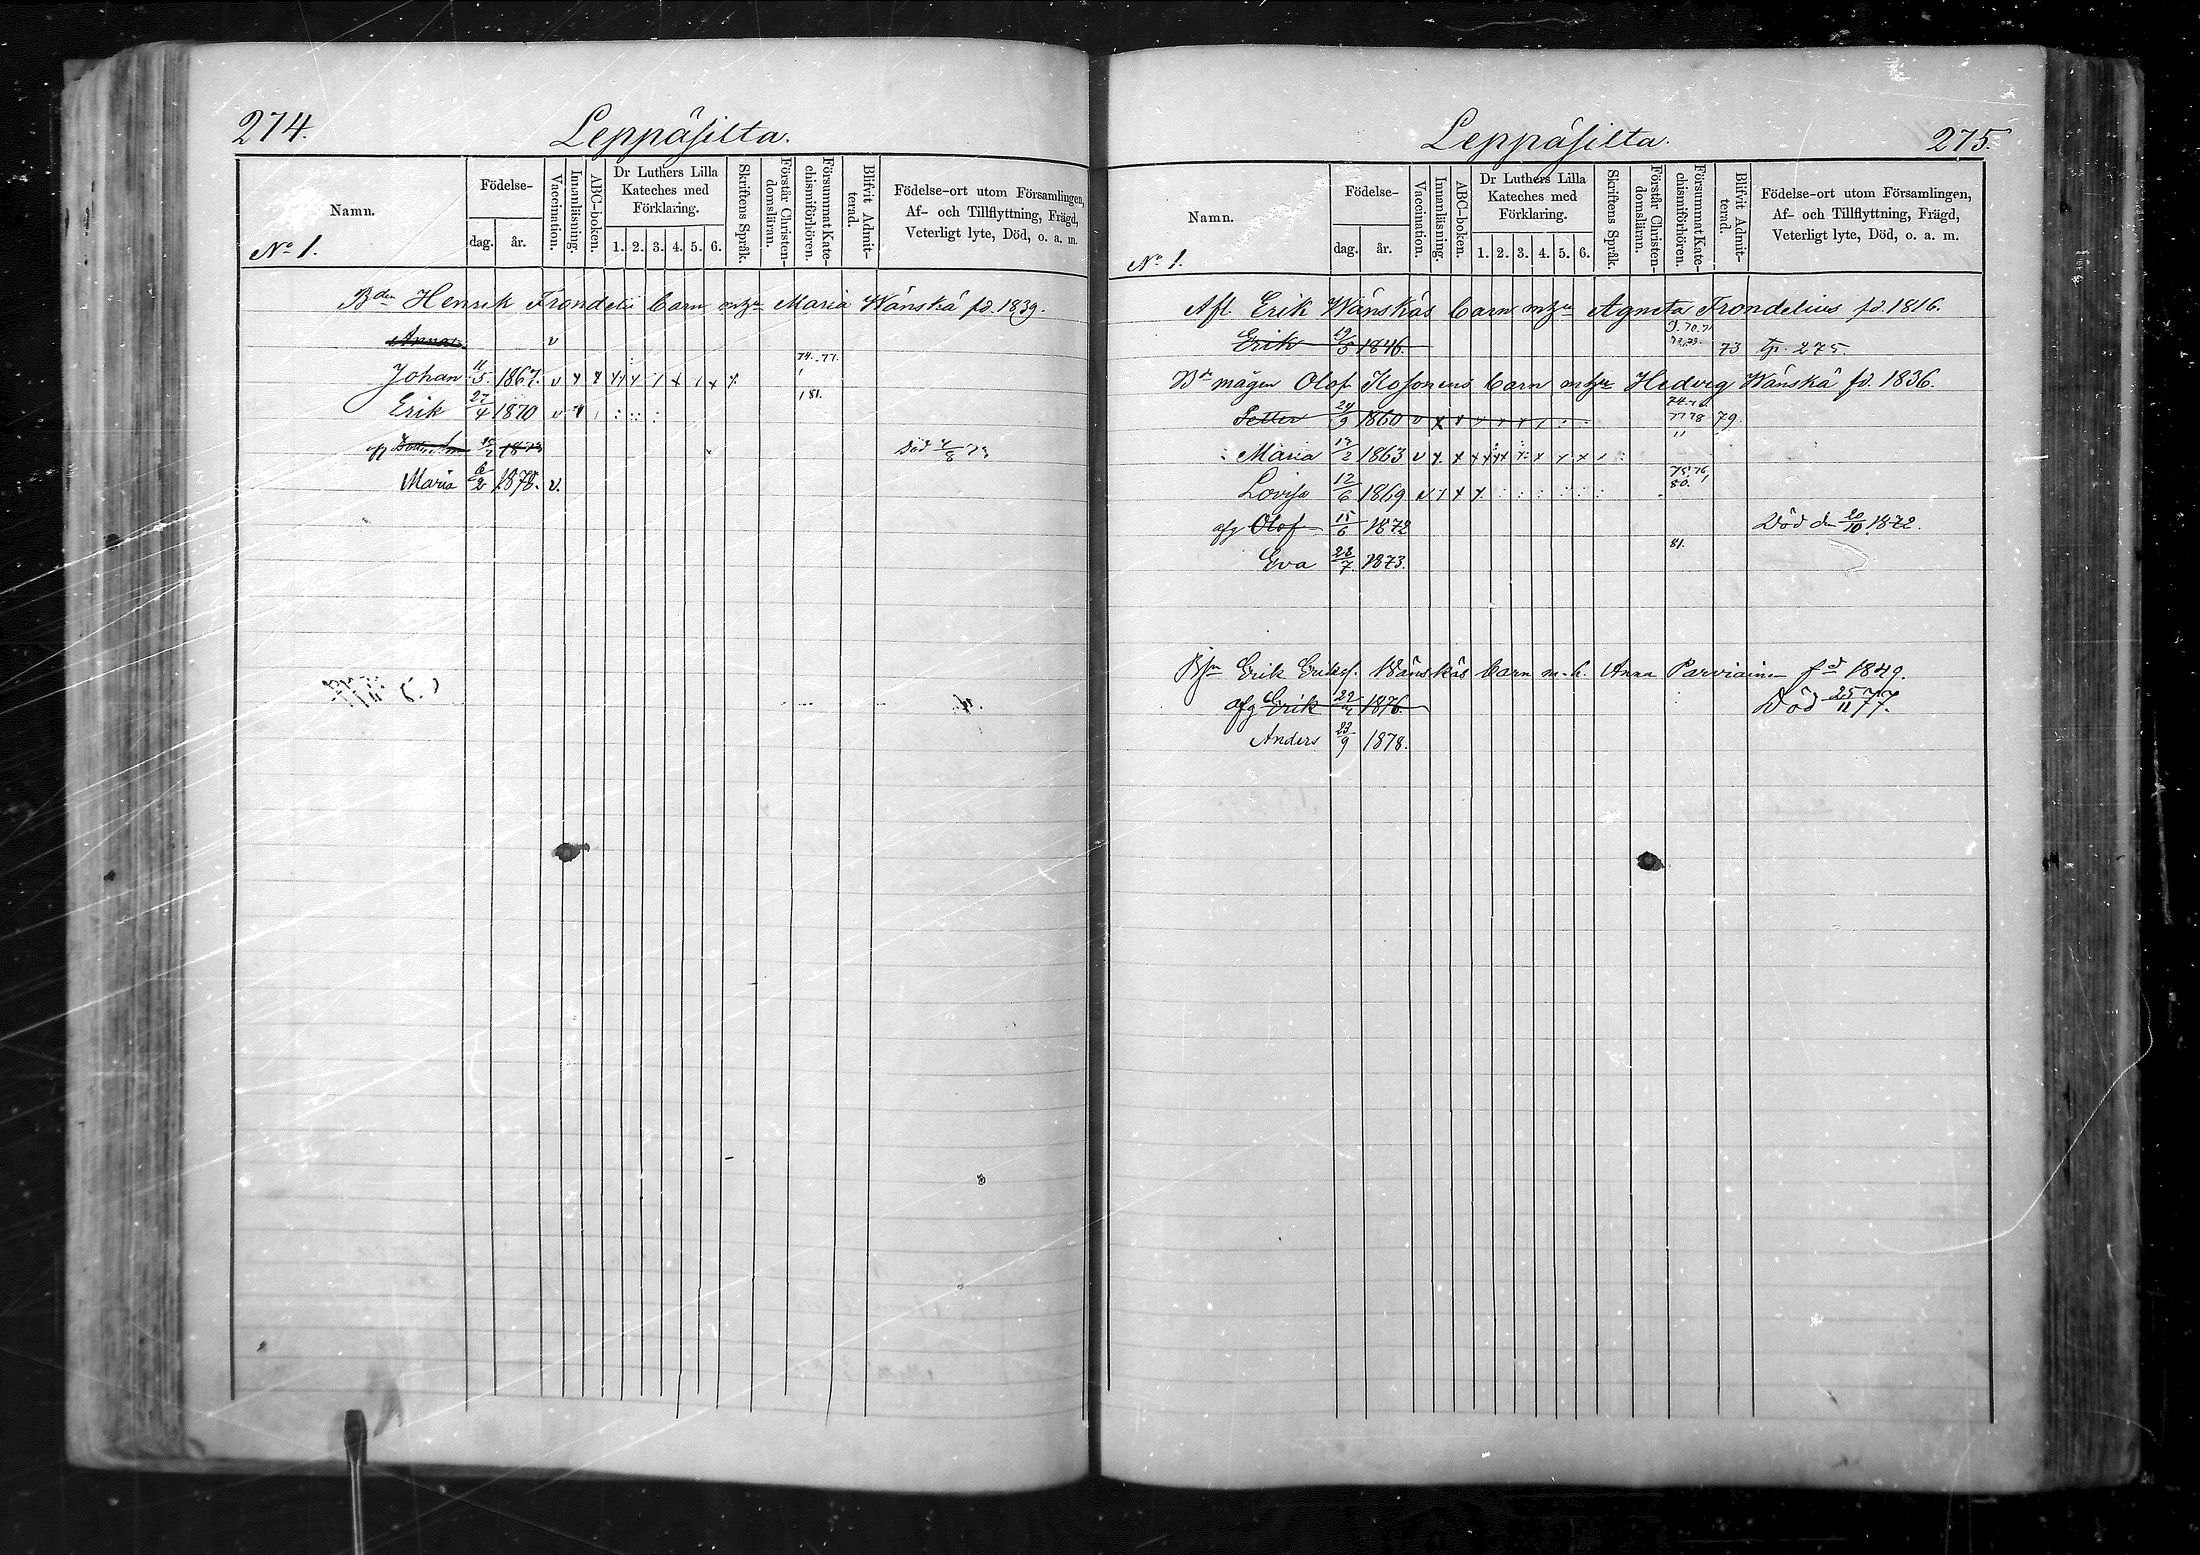 274.
Leppäsilta.
Namn.
No 1.
Födelse-
dag.
år.
Vaccination.
Innanläsning.
ABC-boken.
Dr Luthers Lilla
Kateches med
Förklaring.
1. 2. 3. 4. 5. 6.
Skriftens Språk.
Förstår Christen-
domsläran.
Försummat Kate-
chismiförhören.
Blifvit Admit-
terad.
Födelse-ort utom Församlingen,
Af- och Tillflyttning, Frägd,
Veterligt lyte, Död, o. a. m.
Bden Henrik Frondelii barn Maria Wänskä fd. 1839.
Anna v
74. 77.
Johan 11/5 1867. v x x
181.
Erik 27/4 1870 v
Död 4/8 73
Maria 6/2 1878. v.
Leppäsilta.
275.
Namn.
No 1.
Födelse-
dag.
år.
Vaccination.
Innanläsning.
ABC-boken.
Dr Luthers Lilla
Kateches med
Förklaring.
1. 2. 3. 4. 5. 6.
Skriftens Språk.
Förstår Christen-
domsläran.
Försummat Kate-
chismiförhören.
Blifvit Admit-
terad.
Födelse-ort utom Församlingen,
Af- och Tillflyttning, Frägd,
Veterligt lyte, Död, o. a. m.
Afl. Erik Wänskäs barn Agneta Frondelius fd. 1816.
Erik 19/5 1846. 73 tp. 275.
Bds mågen Olof Kosonens barn Hedvig Wänskä fd. 1836.
Petter 24/9 1860 v x x 77 78 79
Maria 17/2 1863 v x x
75. 76,
Lovisa 12/6 1869 v x x x 80.
afg Olof 15/6 1872 Död d. 20/10 1872.
81.
Eva 28/7 1873.
Erik Eriks. Wänskäs barn m. h. Anna Parviainen fd 1849.
afg Erik 1876. Död 25/11 77.
Anders 23/9 1878.